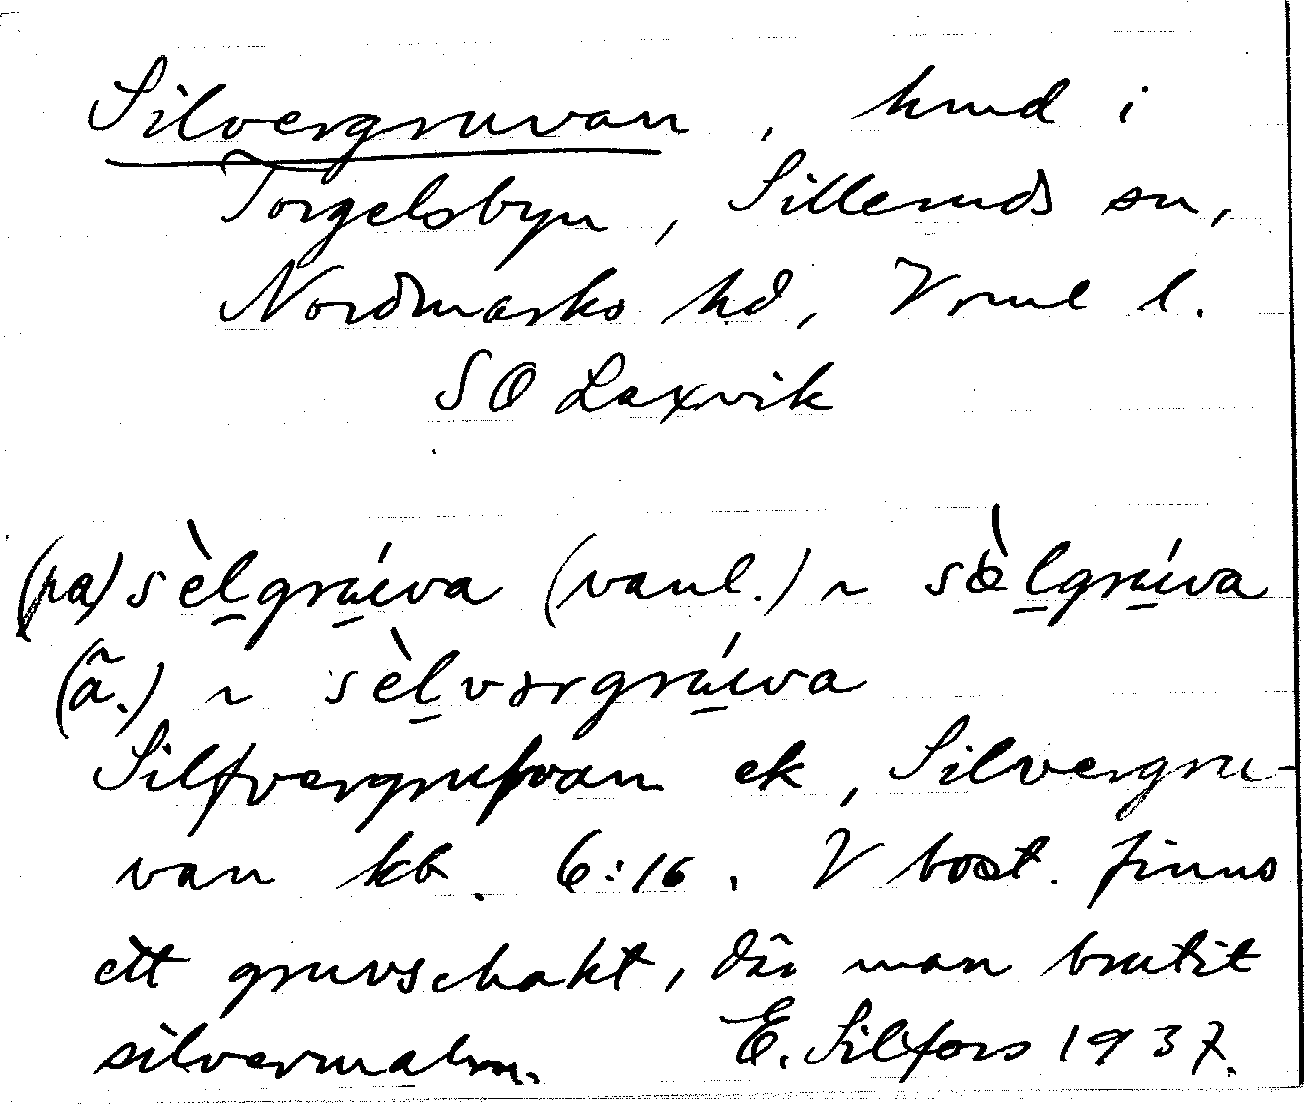 Silvergruvan, hmd i
Torgelsbyn, Silleruds sn,
Nordmarks hd, Vrml l.
SO Laxvik
(pa) sèl̲grú̲va (vanl.) ~ sæ̀l̲grú̲va
(ä.) ~ sèl̲vərgrú̲va
Silfvergrufvan ek, Silvergru-
van kb. 6:16. V bost. finns
ett gruvschakt, där man brutit
silvermalm. E. Silfors 1937.